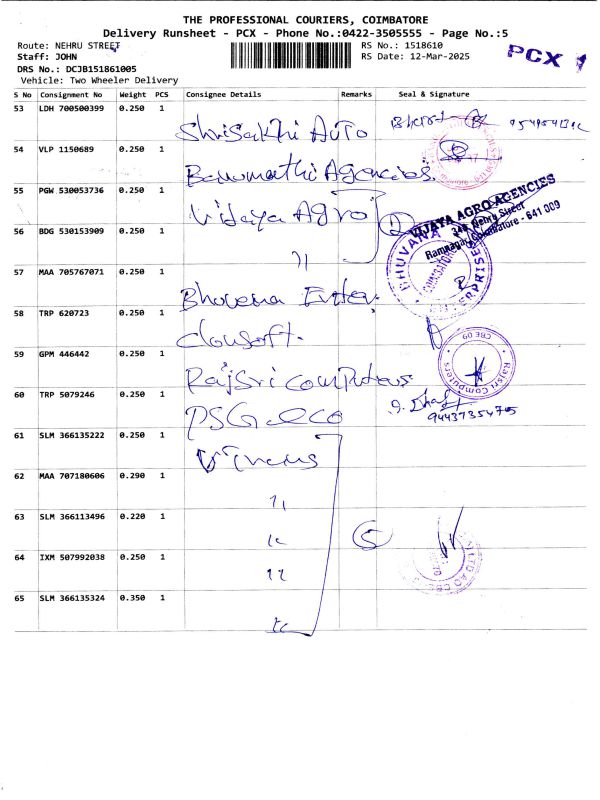 THE PROFESSIONAL COURIERS, COIMBATORE
Delivery Runsheet - PCX - Phone No.:0422-3505555 - Page No.:5
Route: NEHRU STREET
RS No.: 1518610
Staff: JOHN
RS Date: 12-Mar-2025
PCX 1
DRS No.: DCJB151861005
Vehicle: Two Wheeler Delivery
S No Consignment No Weight PCS Consignee Details Remarks Seal & Signature
53 LDH 700500399 0.250 1 Shrisakthi Auto
54 VLP 1150689 0.250 1 Agencies.
55 PGW 530053736 0.250 1 Vijaya Agro
VIJAYA AGRO AGENCIES
348, Nehru Street
Ramnagar, Coimbatore - 641 009
56 BDG 530153909 0.250 1 "
BHUVANA ENTERPRISES
COIMBATORE
57 MAA 705767071 0.250 1 Bhuvena Enter.
58 TRP 620723 0.250 1
59 GPM 446442 0.250 1 Rajsri computers
Rajsri Computers
CBE 09
60 TRP 5079246 0.250 1 PSG
9443735475
61 SLM 366135222 0.250 1
62 MAA 707180606 0.290 1 "
63 SLM 366113496 0.220 1 "
5
64 IXM 507992038 0.250 1 "
65 SLM 366135324 0.350 1 "